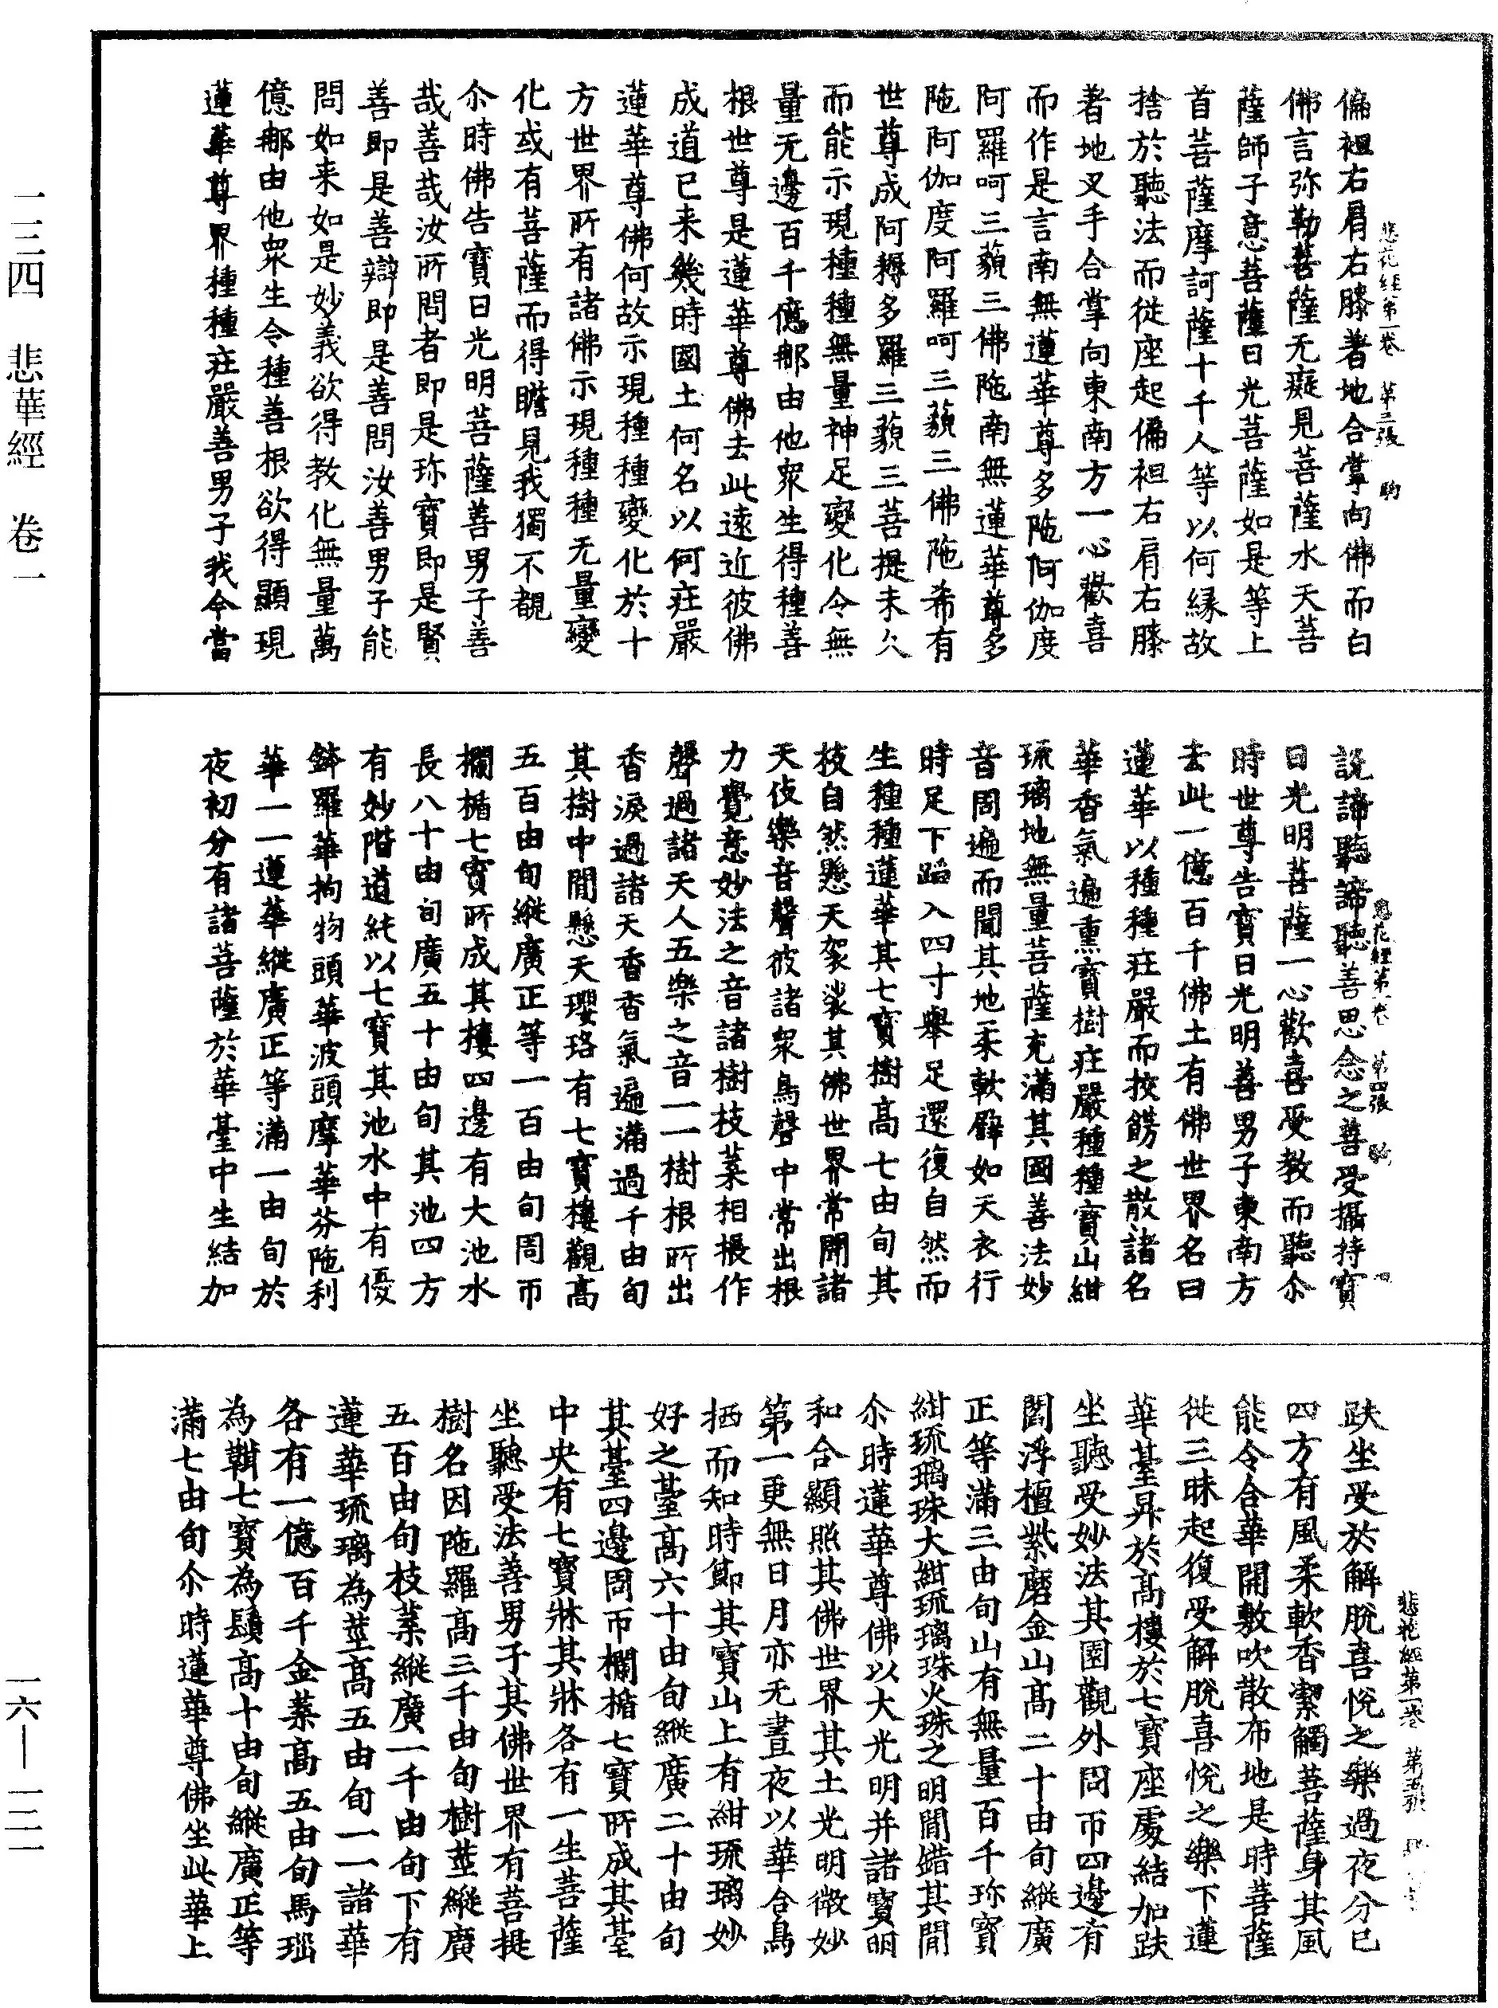 一三四　悲華經　卷一
一六—一二一
悲花經第一卷　第三張　駒
偏袒右肩右膝著地合掌向佛而白
佛言弥勒菩薩无癡見菩薩水天菩
薩師子意菩薩日光菩薩如是等上
首菩薩摩訶薩十千人等以何緣故
捨於聽法而從座起偏袒右肩右膝
著地叉手合掌向東南方一心歡喜
而作是言南無蓮華尊多陁阿伽度
阿羅呵三藐三佛陁南無蓮華尊多
陁阿伽度阿羅呵三藐三佛陁希有
世尊成阿耨多羅三藐三菩提未久
而能示現種種無量神足變化令無
量无邊百千億那由他衆生得種善
根世尊是蓮華尊佛去此遠近彼佛
成道已来幾時國土何名以何莊嚴
蓮華尊佛何故示現種種變化於十
方世界所有諸佛示現種種无量變
化或有菩薩而得瞻見我獨不覩
尒時佛告寶日光明菩薩善男子善
哉善哉汝所問者即是珎寶即是賢
善即是善辯即是善問汝善男子能
問如来如是妙義欲得教化無量萬
億那由他衆生令種善根欲得顯現
蓮華尊界種種莊嚴善男子我今當
悲花經第一卷　第四張　駒
說諦聽諦聽善思念之善受攝持寶
日光明菩薩一心歡喜受教而聽尒
時世尊告寶日光明善男子東南方
去此一億百千佛土有佛世界名曰
蓮華以種種莊嚴而挍餝之散諸名
華香氣遍熏寶樹莊嚴種種寶山紺
琉璃地無量菩薩充滿其國善法妙
音周遍而聞其地柔軟譬如天衣行
時足下蹈入四寸舉足還復自然而
生種種蓮華其七寶樹高七由旬其
枝自然懸天袈裟其佛世界常聞諸
天伎樂音聲彼諸衆鳥聲中常出根
力覺意妙法之音諸樹枝葉相振作
聲過諸天人五樂之音一一樹根所出
香淚過諸天香香氣遍滿過千由旬
其樹中間懸天瓔珞有七寶樓觀高
五百由旬縱廣正等一百由旬周帀
欄楯七寶所成其樓四邊有大池水
長八十由旬廣五十由旬其池四方
有妙階道純以七寶其池水中有優
鉢羅華拘物頭華波頭摩華芬陁利
華一一蓮華縱廣正等滿一由旬於
夜初分有諸菩薩於華臺中生結加
悲花經第一卷　第五張
趺坐受於解脫喜悅之樂過夜分已
四方有風柔軟香潔觸菩薩身其風
能令合華開敷吹散布地是時菩薩
從三昧起復受解脫喜悅之樂下蓮
華臺昇於高樓於七寶座處結加趺
坐聽受妙法其園觀外周帀四邊有
閻浮檀紫磨金山高二十由旬縱廣
正等滿三由旬山有無量百千珎寶
紺琉璃珠大紺琉璃珠火珠之明間錯其間
尒時蓮華尊佛以大光明并諸寶明
和合顯照其佛世界其土光明微妙
第一更無日月亦无晝夜以華合鳥
栖而知時節其寶山上有紺琉璃妙
好之臺高六十由旬縱廣二十由旬
其臺四邊周帀欄楯七寶所成其臺
中央有七寶牀其牀各有一生菩薩
坐聽受法善男子其佛世界有菩提
樹名因陁羅高三千由旬樹莖縱廣
五百由旬枝葉縱廣一千由旬下有
蓮華琉璃為莖高五由旬一一諸華
各有一億百千金葉高五由旬馬瑙
為鞘七寶為鬚高十由旬縱廣正等
滿七由旬尒時蓮華尊佛坐此華上